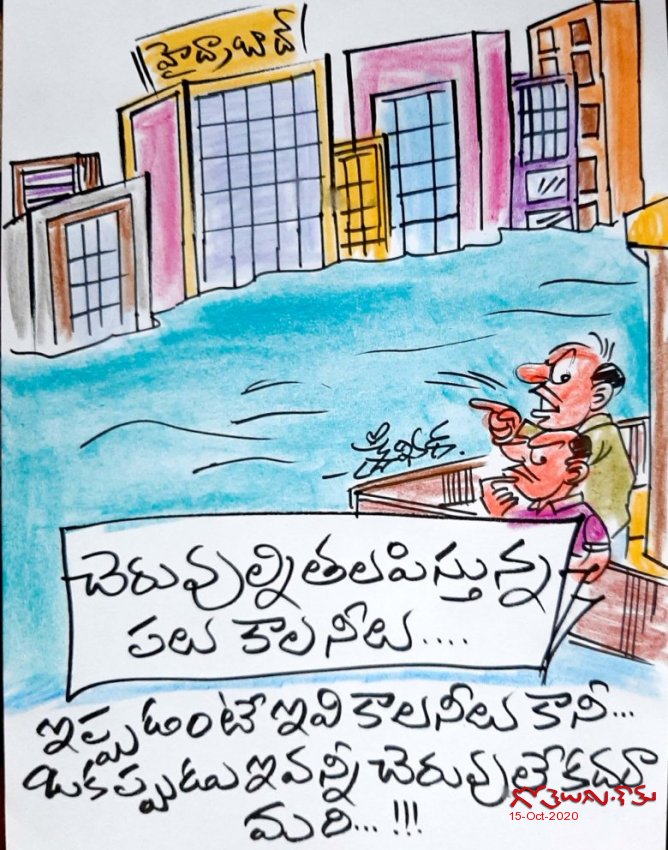 హైద్రాబాద్
చెరువుల్ని తలపిస్తున్న
పలు కాలనీలు....
ఇప్పుడంటే ఇవి కాలనీలు కానీ...
ఒకప్పుడు ఇవన్నీ చెరువులేకదా
మరి... !!!
గోతెలుగు.కామ్
15-Oct-2020